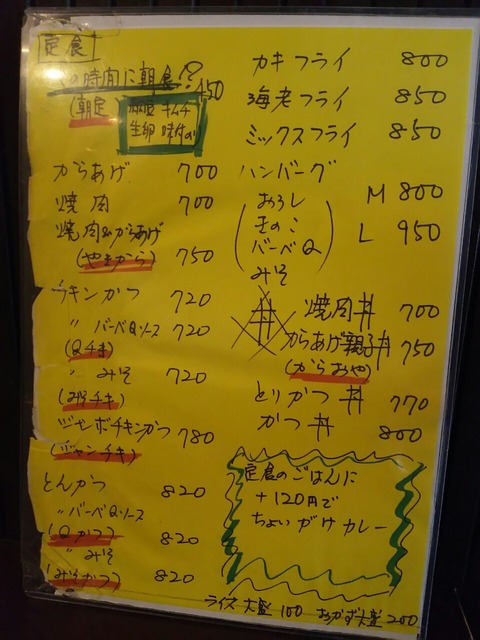 定食
の時間に朝食?
450
(朝定)
納豆 キムチ
生卵 味付のり
からあげ 700
焼肉 700
焼肉&からあげ
(やきから) 750
チキンかつ 720
〃 バーベQソース 720
(Qチキ)
〃 みそ 720
(みそチキ)
ジャンボチキンかつ 780
(ジャンチキ)
とんかつ 820
〃バーベQソース
(Qかつ) 820
〃 みそ
(みそかつ) 820
カキフライ 800
海老フライ 850
ミックスフライ 850
ハンバーグ
おろし
きのこ
バーベQ
みそ
M 800
L 950
丼
焼肉丼 700
からあげ親子丼 750
(からおや)
とりかつ丼 770
かつ丼 800
定食のごはんに
+120円で
ちょいがけカレー
ライス大盛 100 おかず大盛 200